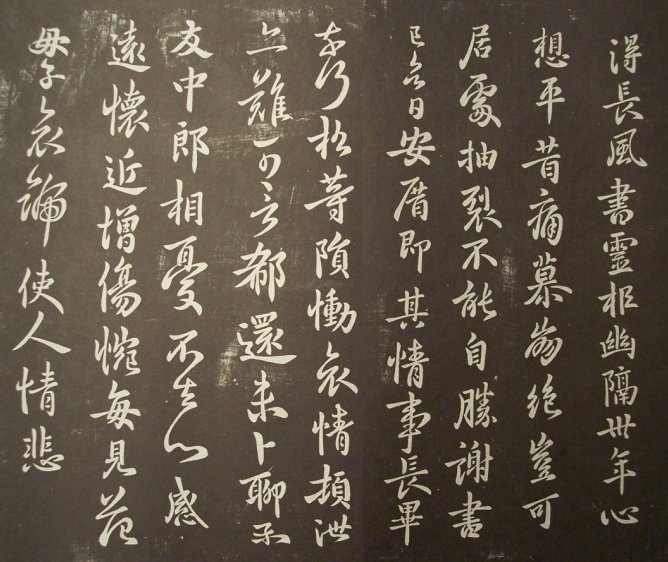 得長風書靈柩幽隔卅年心
想平昔痛慕崩絶豈可
居處抽裂不能自勝謝書
已至日安厝即其情事長畢
奈何松等隕慟哀情頓泄
亦難可言郗還未卜聊示
友中郎相憂不去心感
遠懷近增傷惋每見范
母子哀號使人情悲